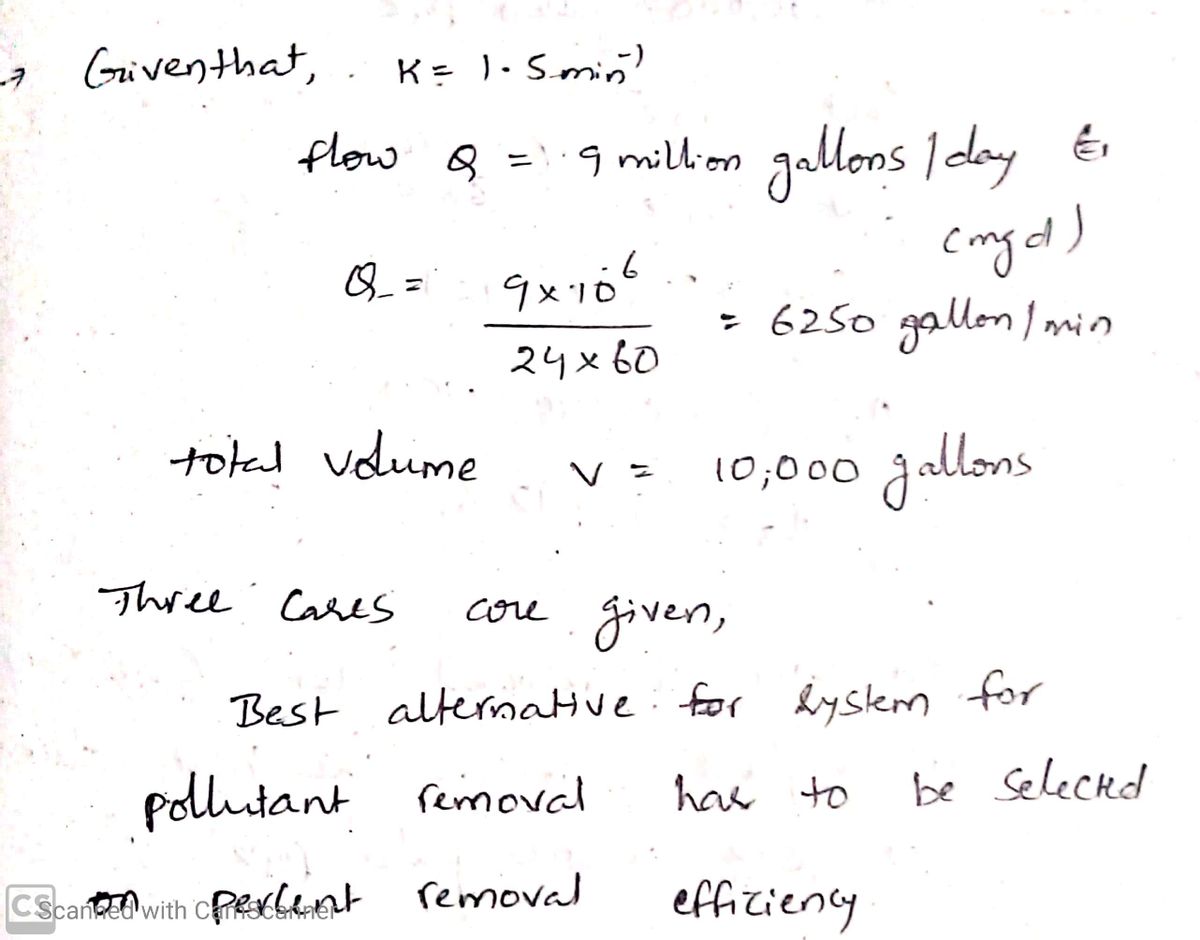 → Given that, K = 1.5 min⁻¹
flow Q = 9 million gallons / day
(mgd)
Q = 9×10⁶ / 24×60 = 6250 gallon / min
total volume V = 10,000 gallons
Three cases are given,
Best alternative for system for
pollutant removal has to be selected
on percent removal efficiency
CS Scanned with CamScanner